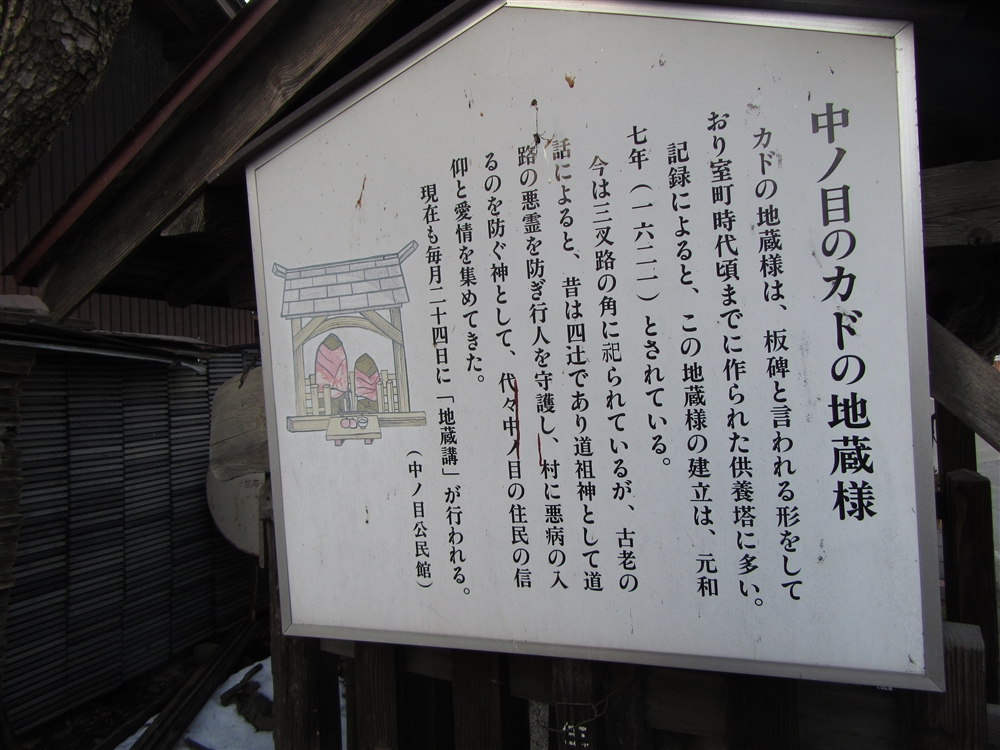 中ノ目のカドの地蔵様
カドの地蔵様は、板碑と言われる形をして
おり室町時代頃までに作られた供養塔に多い。
記録によると、この地蔵様の建立は、元和
七年（一六二一）とされている。
今は三叉路の角に祀られているが、古老の
話によると、昔は四辻であり道祖神として道
路の悪霊を防ぎ行人を守護し、村に悪病の入
るのを防ぐ神として、代々中ノ目の住民の信
仰と愛情を集めてきた。
現在も毎月二十四日に「地蔵講」が行われる。
（中ノ目公民館）